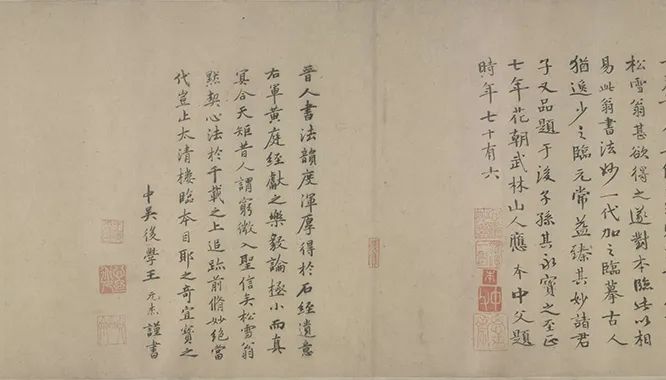 松雪翁甚欲得之遂對本臨此以相
易此翁書法妙一代加之臨摹古人
猶逸少之臨元常益臻其妙諸君
子又品題于後子孫其永寶之至正
七年花朝武林山人應本中父題
時年七十有六
晉人書法韻度渾厚得於石經遺意
右軍黃庭經獻之樂毅論極小而真
冥合天矩昔人謂窮微入聖信矣松雪翁
默契心法於千載之上追跡前脩妙絕當
代豈止太清樓臨本目耶之奇宜寶之
中吳後學王元謹書